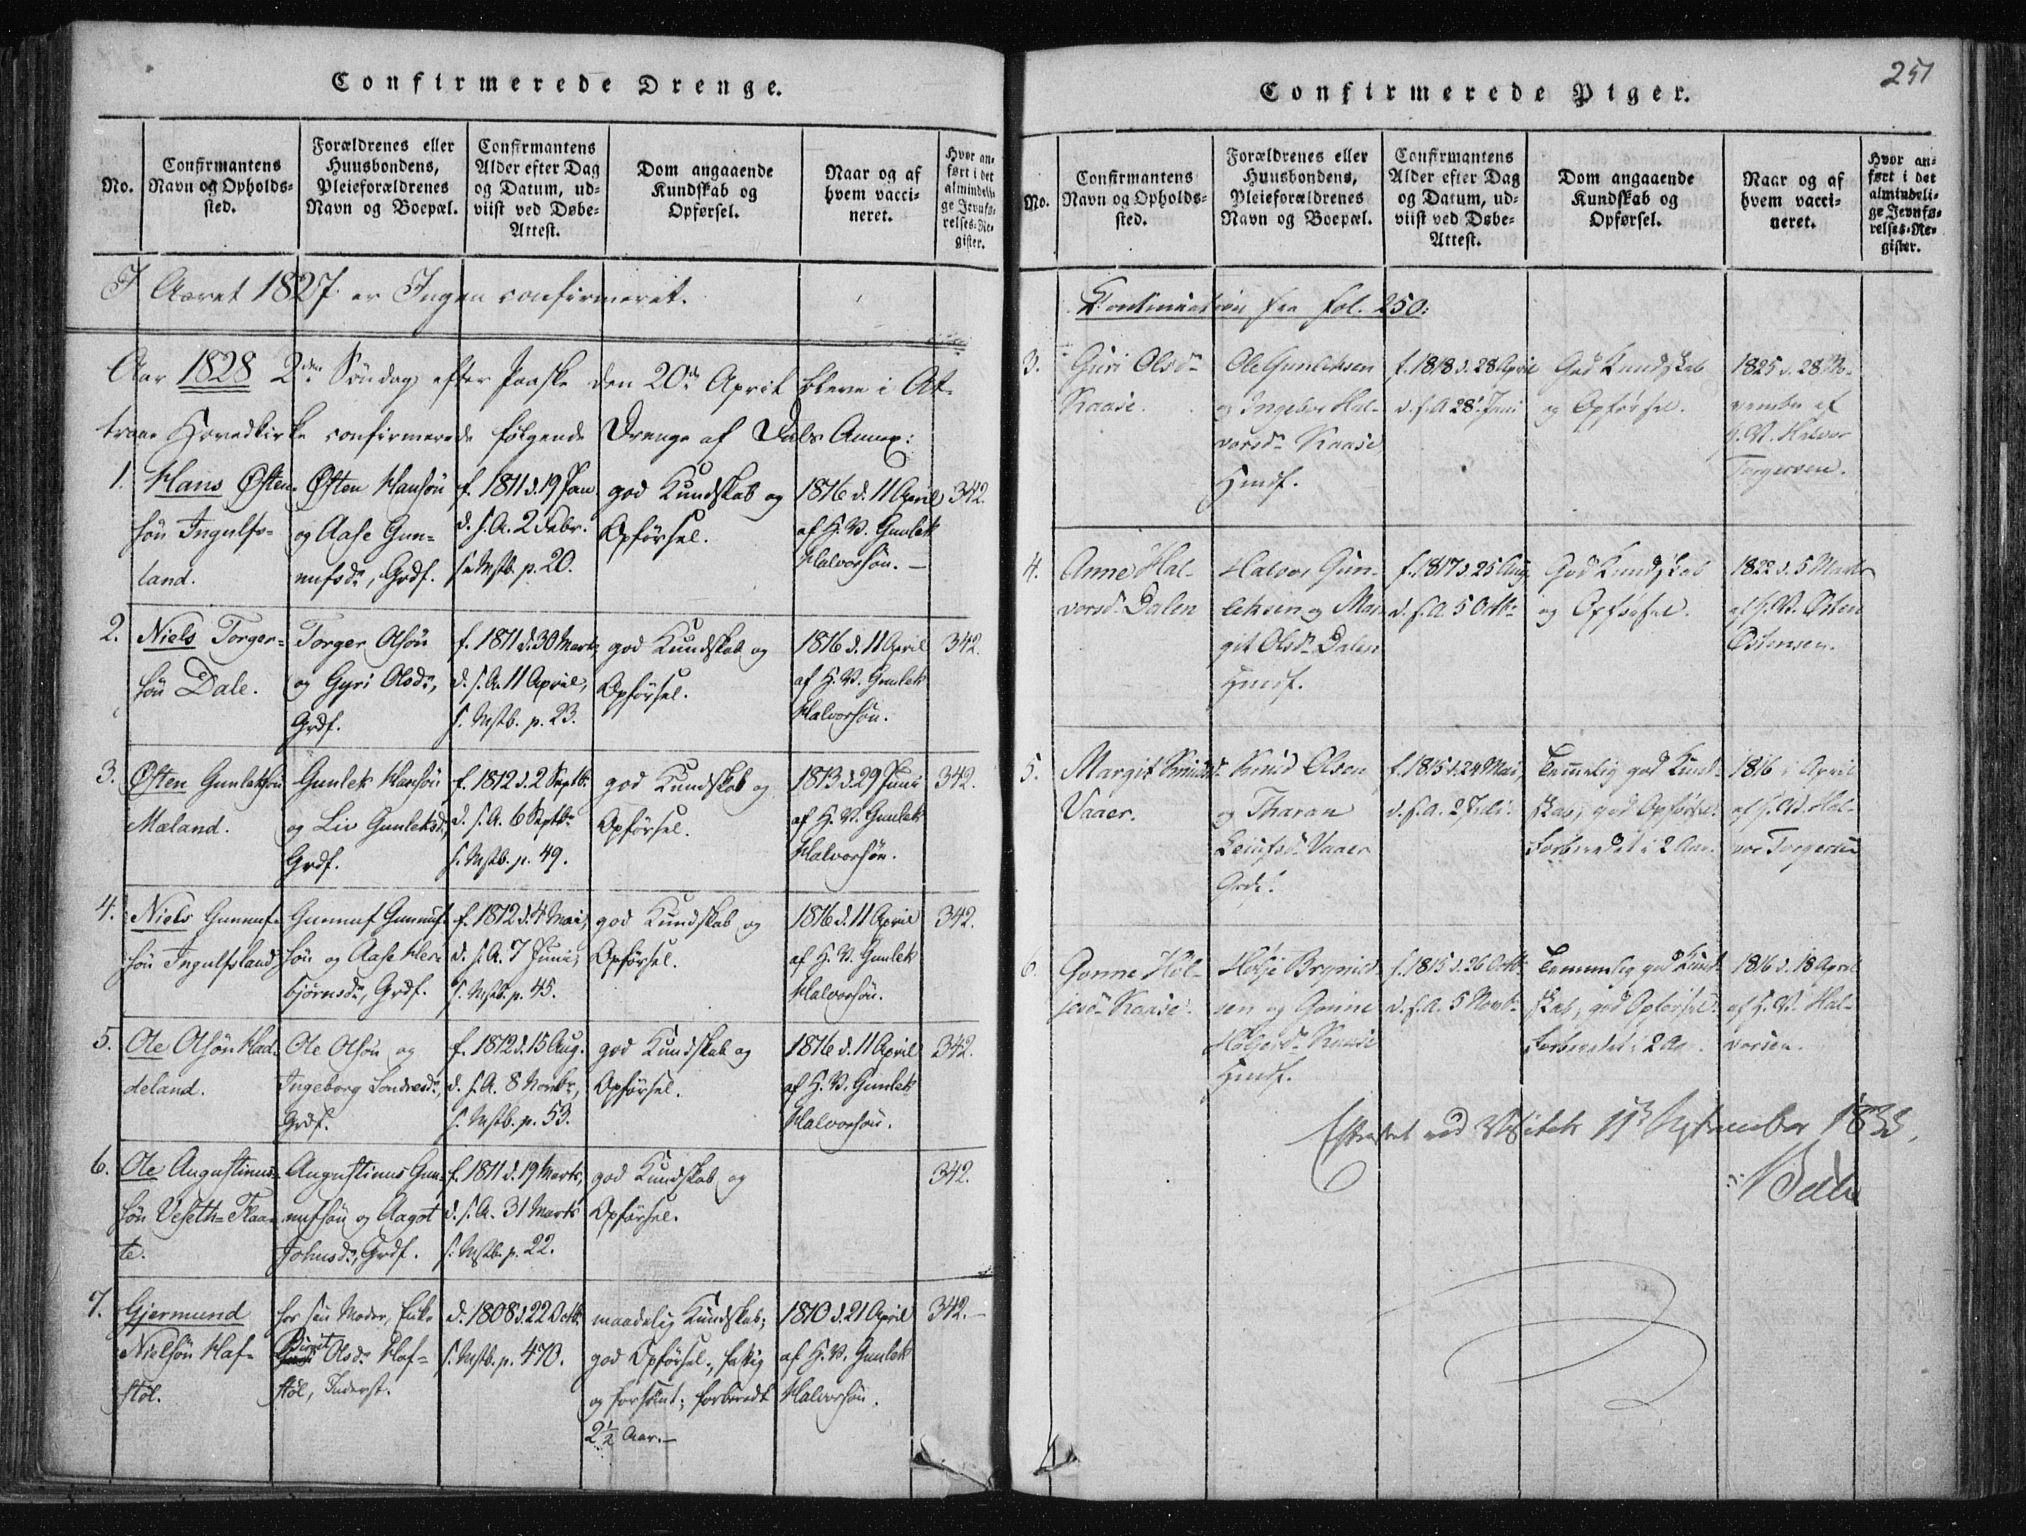 Confirmerede Drenge.
No.
Confirmantens
Navn og Opholds-
sted.
Forældrenes eller
Huusbondens,
Pleieforældrenes
Navn og Boepæl.
Confirmantens
Alder efter Dag
og Datum, ud-
viist ved Døbe-
Attest.
Dom angaaende
Kundskab og
Opførsel.
Naar og af
hvem vacci-
neret.
Hvor an-
ført i det
almindeli-
ge Jevnfø-
relses-Re-
gister.
I Aaret 1827 er Ingen confirmeret.
Aar 1828 2den Søndag efter Paaske den 20de April bleve i At-
traae Hovedkirke confirmerede følgende Drenge af Dals Annex:
1.
Hans Østen-
søn Ingulfs-
land.
Østen Hansøn
og Aase Gun-
nufsdr, Grdf.
f. 1811 d. 19 Jan
d. s. A. 2 Febr.
s. Mstb. p. 20.
god Kundskab og
Opførsel.
1816 d. 11 April
af H. V. Gunlek
Halvorsøn. —
342.
2.
Niels Torger-
søn Dale.
Torger Olsøn
og Gyri Olsdr,
Grdf.
f. 1811 d. 30 Marts
d. s. A. 11 April,
s. Mstb. p. 23.
god Kundskab og
Opførsel.
1816 d. 11 April
af H. V. Gunlek
Halvorsøn.
342.
3.
Østen Gunleksøn
Mæland.
Gunlek Hansøn
og Liv Gunleksdr,
Grdf.
f. 1812 d. 2 Septbr.
d. s. A. 6 Septbr.
s. Mstb. p. 49.
god Kundskab og
Opførsel.
1813 d. 29 Juni
af H. V. Gunlek
Halvorsøn.
342.
4.
Niels Gunnuf-
søn Ingulfsland
Gunnuf Gunnuf-
søn og Aase Her-
bjørnsdr, Grdf.
f. 1812 d. 4 Mai,
d. s. A. 7 Juni,
s. Mstb. p. 45.
god Kundskab og
Opførsel.
1816 d. 11 April
af H. V. Gunlek
Halvorsøn.
342.
5.
Ole Olsøn Had-
deland.
Ole Olsøn og
Ingeborg Sondresdr,
Grdf.
f. 1812 d. 15 Aug.
d. s. A. 8 Novbr,
s. Mstb. p. 53.
god Kundskab og
Opførsel.
1816 d. 11 April
af H. V. Gunlek
Halvorsøn.
342.
6.
Ole Augustinus-
søn Veseth-Flaa-
te.
Augustinus Gun-
nufsøn og Aagot
Johnsdr, Grdf.
f. 1811 d. 19 Marts,
d. s. A. 31 Marts
s. Mstb. p. 22.
god Kundskab og
Opførsel.
342.
7.
Gjermund
Nielsøn Haf-
støl.
hos sin Moder, Enke
Birgit Olsdr Haf-
støl, Inderst.
d. 1808 d. 22 Octb.
s. Mstb. p. 470.
maadelig Kundskab;
god Opførsel;
og forsømt; forberedt
2 1/2 Aar.—
1810 d. 21 April
af H. V. Gunlek
Halvorsøn.
342.—
251
Confirmerede Piger.
No.
Confirmantens
Navn og Opholds-
sted.
Forældrenes eller
Huusbondens,
Pleieforældrenes
Navn og Boepæl.
Confirmantens
Alder efter Dag
og Datum, ud-
viist ved Døbe-
Attest.
Dom angaaende
Kundskab og
Opførsel.
Naar og af
hvem vacci-
neret.
Hvor an-
ført i det
almindeli-
ge Jevnfø-
relses-Re-
gister.
Continuation fra fol. 250:
3.
Guri Olsdr
Kaase.
Ole Gunleksen
og Ingebor Hal-
vorsdr Kaase
Hmdf.
f. 1818 d. 28 April
d. s. A 28 Juni
God Kundskab
og Opførsel.
1825 d. 28 No-
vember af
H. V. Halvor
Torgersen.
4.
Anne Hal-
vorsdr Dalen
Halvor Gun-
leksen og Mar-
git Olsdr Dalen
Hmdf.
f. 1817 d. 25 Aug.
d. s. A. 5 Octbr
God Kundskab
og Opførsel.
1822 d. 5 Marts
af H. V. Østen
Østensen.
5.
Margit Knudsdr
Vaaer.
Knud Olsen
og Tharan
Leiufsdr Vaaer
Grdf.
f. 1815 d. 24 Mai
d. s. A. 2 Juli.
Temelig god Kund-
skab, god Opførsel.
Forberedet i 2 Aar.
1816 i April
af H. V. Hal-
vor Torgersen
6.
Gonne Høl-
jesdr Kaase.
Høljе Brynild-
sen og Gonne
Høljesdr Kaase
Hmdf.
f. 1815 d. 26 Octb.
d. s. A. 5 Novbr
Temmelig god Kund-
skab, god Opførsel.
Forberedet i 2 Aar.
1816 d. 18 April
af H. V. Hal-
vorsen.
ved Visitats 11 September 1833.